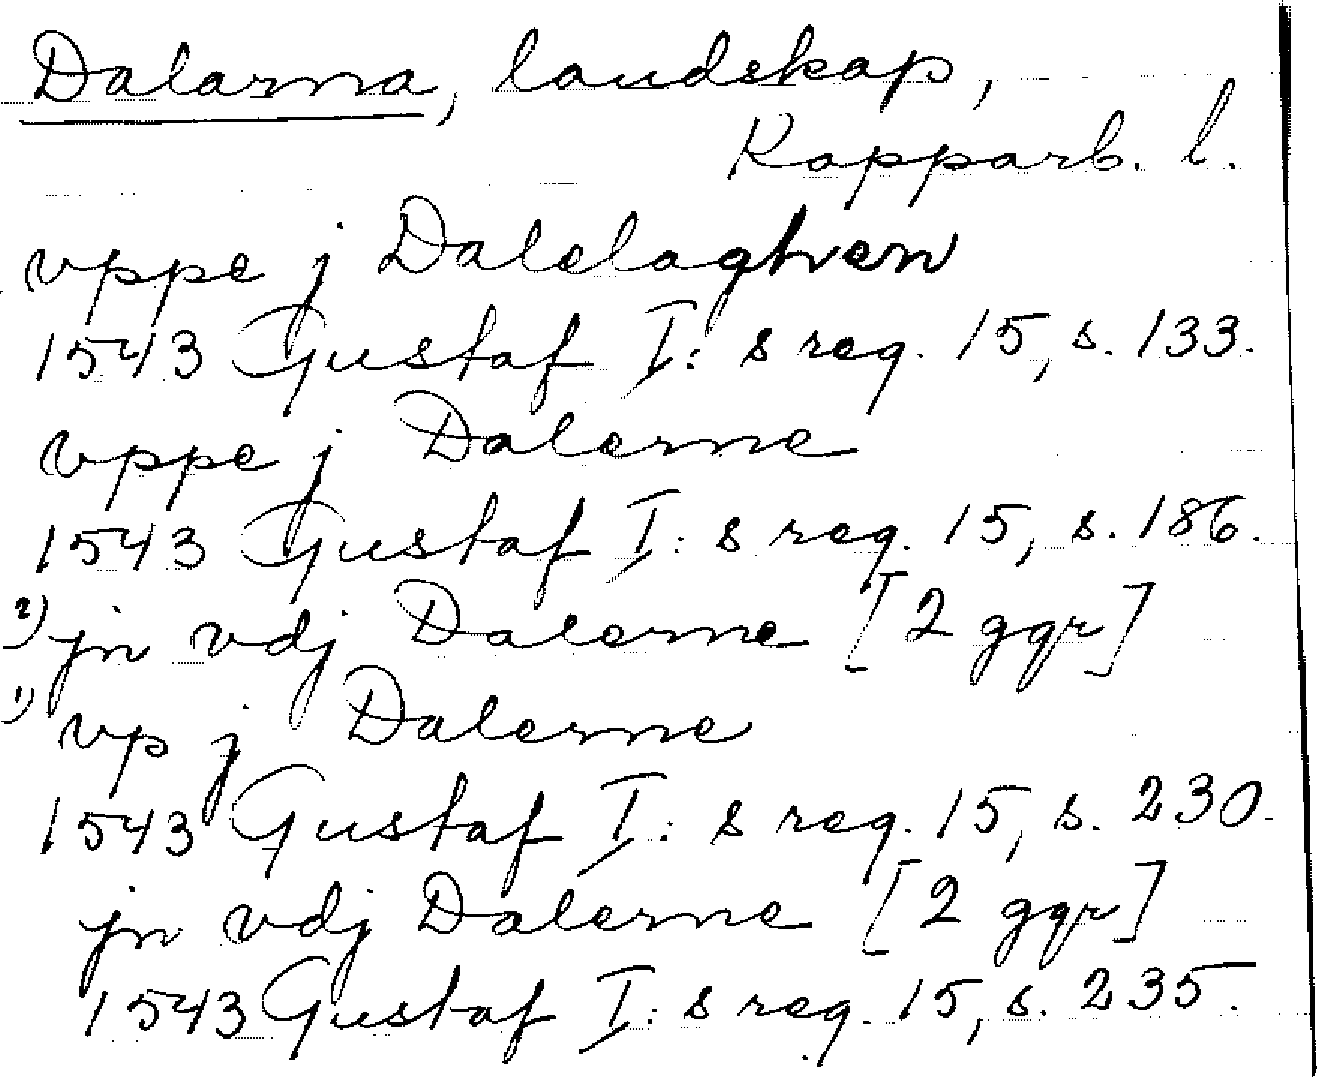 Dalarna, landskap,
Kopparb. l.
vppe j Dalelaghen
1543 Gustaf I: s reg. 15, s. 133.
vppe j Dalerne
1543 Gustaf I: s reg. 15, s. 186.
2) jn vdj Dalerne [2 ggr]
1) vp j Dalerne
1543 Gustaf I: s reg. 15, s. 230.
jn vdj Dalerne [2 ggr]
1543 Gustaf I: s reg. 15, s. 235.